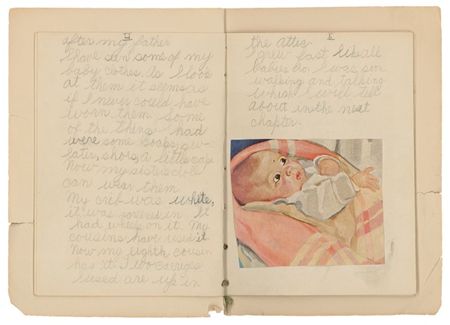 after my father
I have seen some of my
baby clothes. As I look
at them it seems as
if I never could have
worn them. Some
of the things I had
were some booties, sw-
eater, shoes, a little cape
Now my sister's doll
can wear them
My crib was white,
it was screened in. It
had wheels on it. My
cousins have used it
Now my eighth cousin
has it. Two carriages
I used are up in
the attic
I grew fast like all
babies do. I was soon
walking and talking
which I will tell
about in the next
chapter.